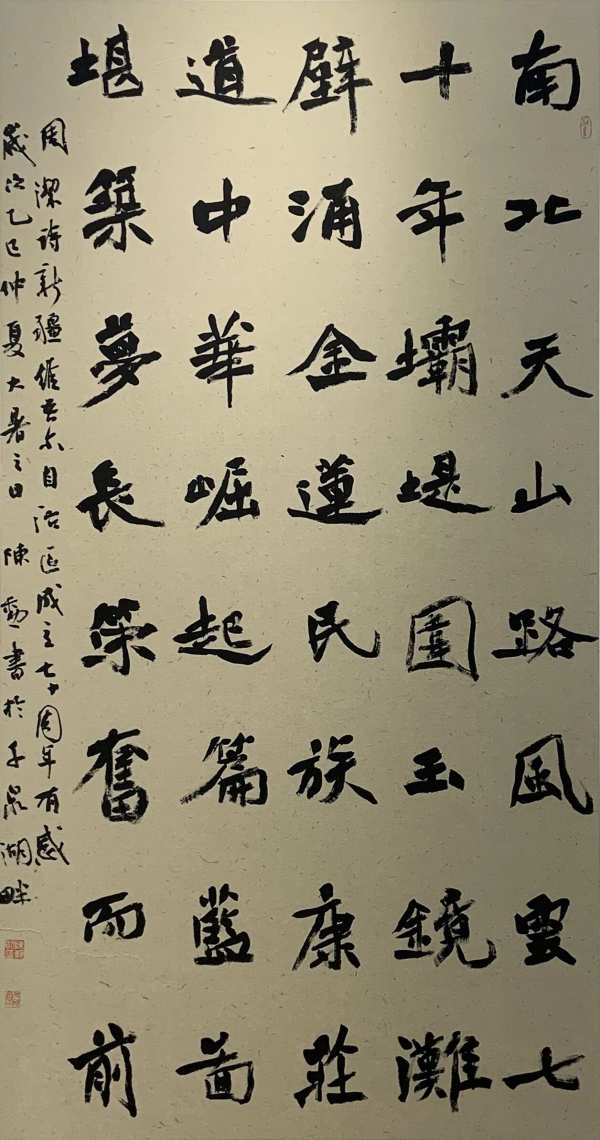 南北天山路風雲七
十年壩堤圍玉鏡灘
壁涌金蓮民族康莊
道中華崛起篇藍圖
堪築夢長策奮而前
周潔詩新疆維吾尔自治區成立七十周年有感
歲次乙巳仲夏大暑之日陳書於千泉湖畔